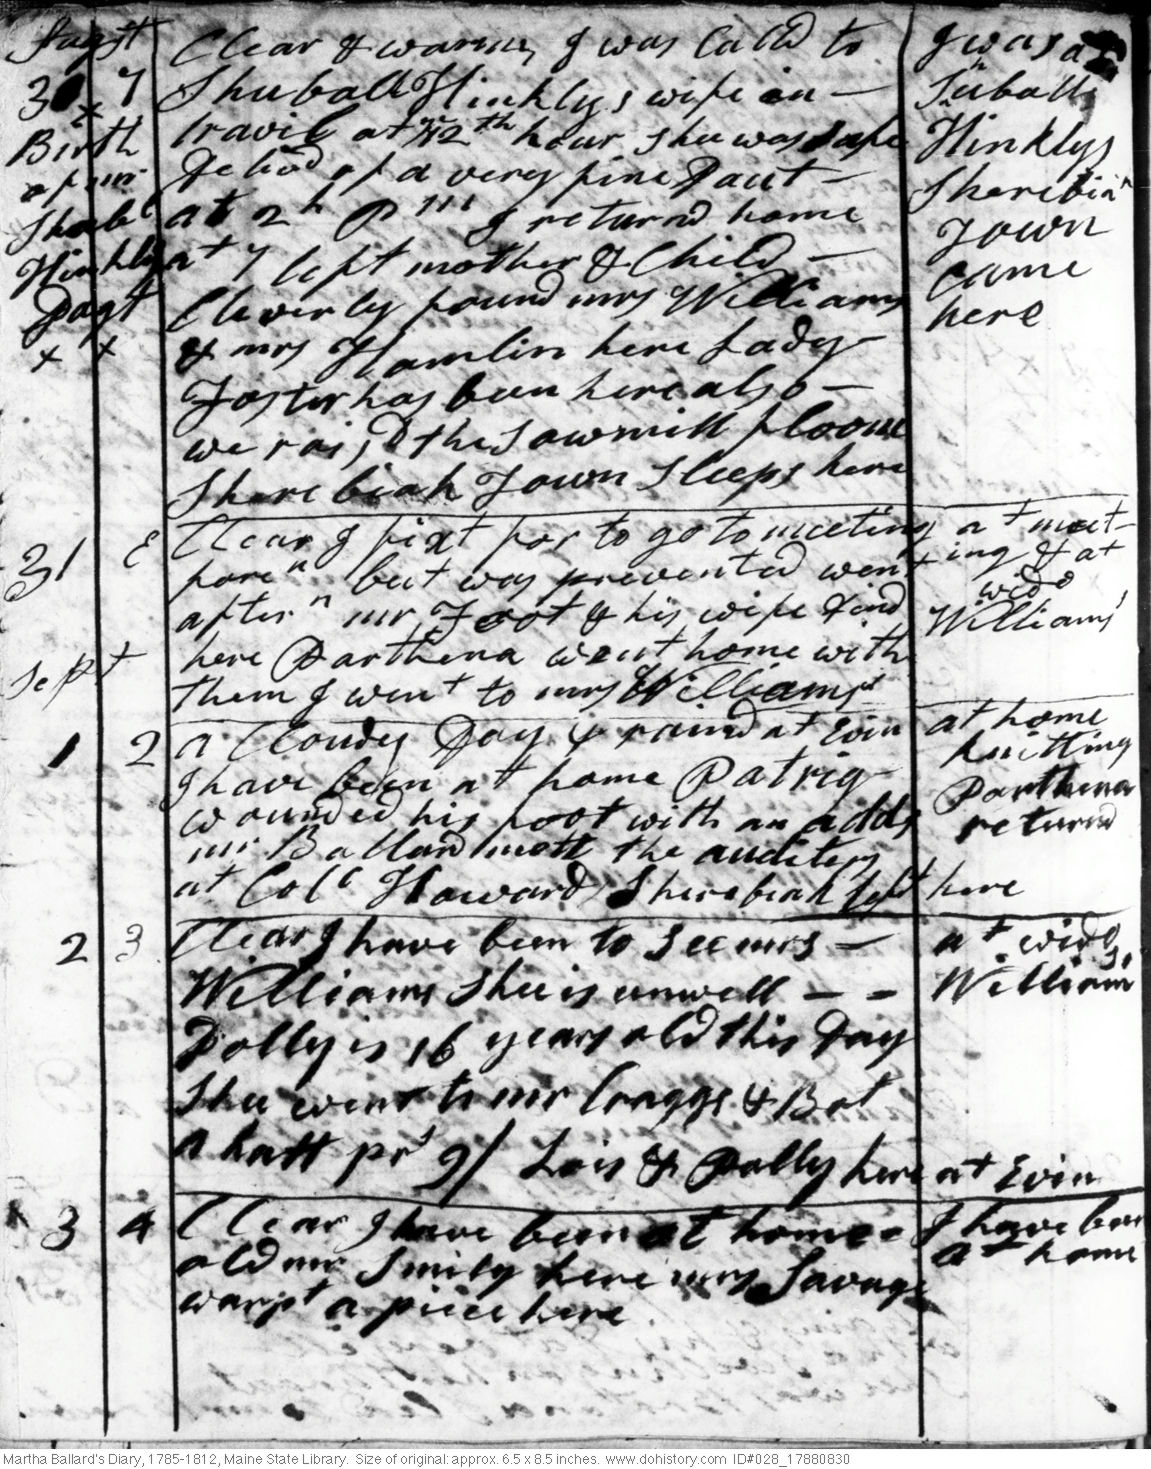 Augst
30 7
Birth
of mr
Shubl
Hinkly
Dagt
x x
Clear & warm, I was Calld to
Shuball Hinklys wife in —
travil at 12th hour shee was safe
Delivd of a very fine Daut —
at 2 h Pm I returnd home
at 7 left mother & Child —
Cleverly found mrs Williams
& mrs Hamlin here Lady
Foster has been here also —
we rais,d the Sawmill floom
Sherebiah Town Sleeps here
I was at
Suball
Hinklys
Sherebiah
Town
came
here
31 E
Clear I fixt for to go to meeting
foren but was prevented went
aftern mr Foot & his wife dind
here Parthena went home with
them I went to mrs Williams
at meet-
ing & at
wido
Williams'
Sept
1 2
a Cloudy Day & raind at Evin
I have been at home Patrig
wounded his foot with an adds
mr Ballard mett the auditers
at Colc Howards Sherebiah left here
at home
knitting
Parthena
returnd
2 3
Clear I have been to See mrs —
Williams Shee is unwell — —
Dolly is 16 years old this Day
Shee went to mr Craggs & Bot
a hatt pr 9/ Lois & Polly here at Evin
at wido
Williams
3 4
Clear I have been at home
old mr Smily here mrs Savage
warpt a piece here
I have been
at home
Martha Ballard's Diary, 1785-1812, Maine State Library. Size of original: approx. 6.5 x 8.5 inches. www.dohistory.com ID#028_17880830